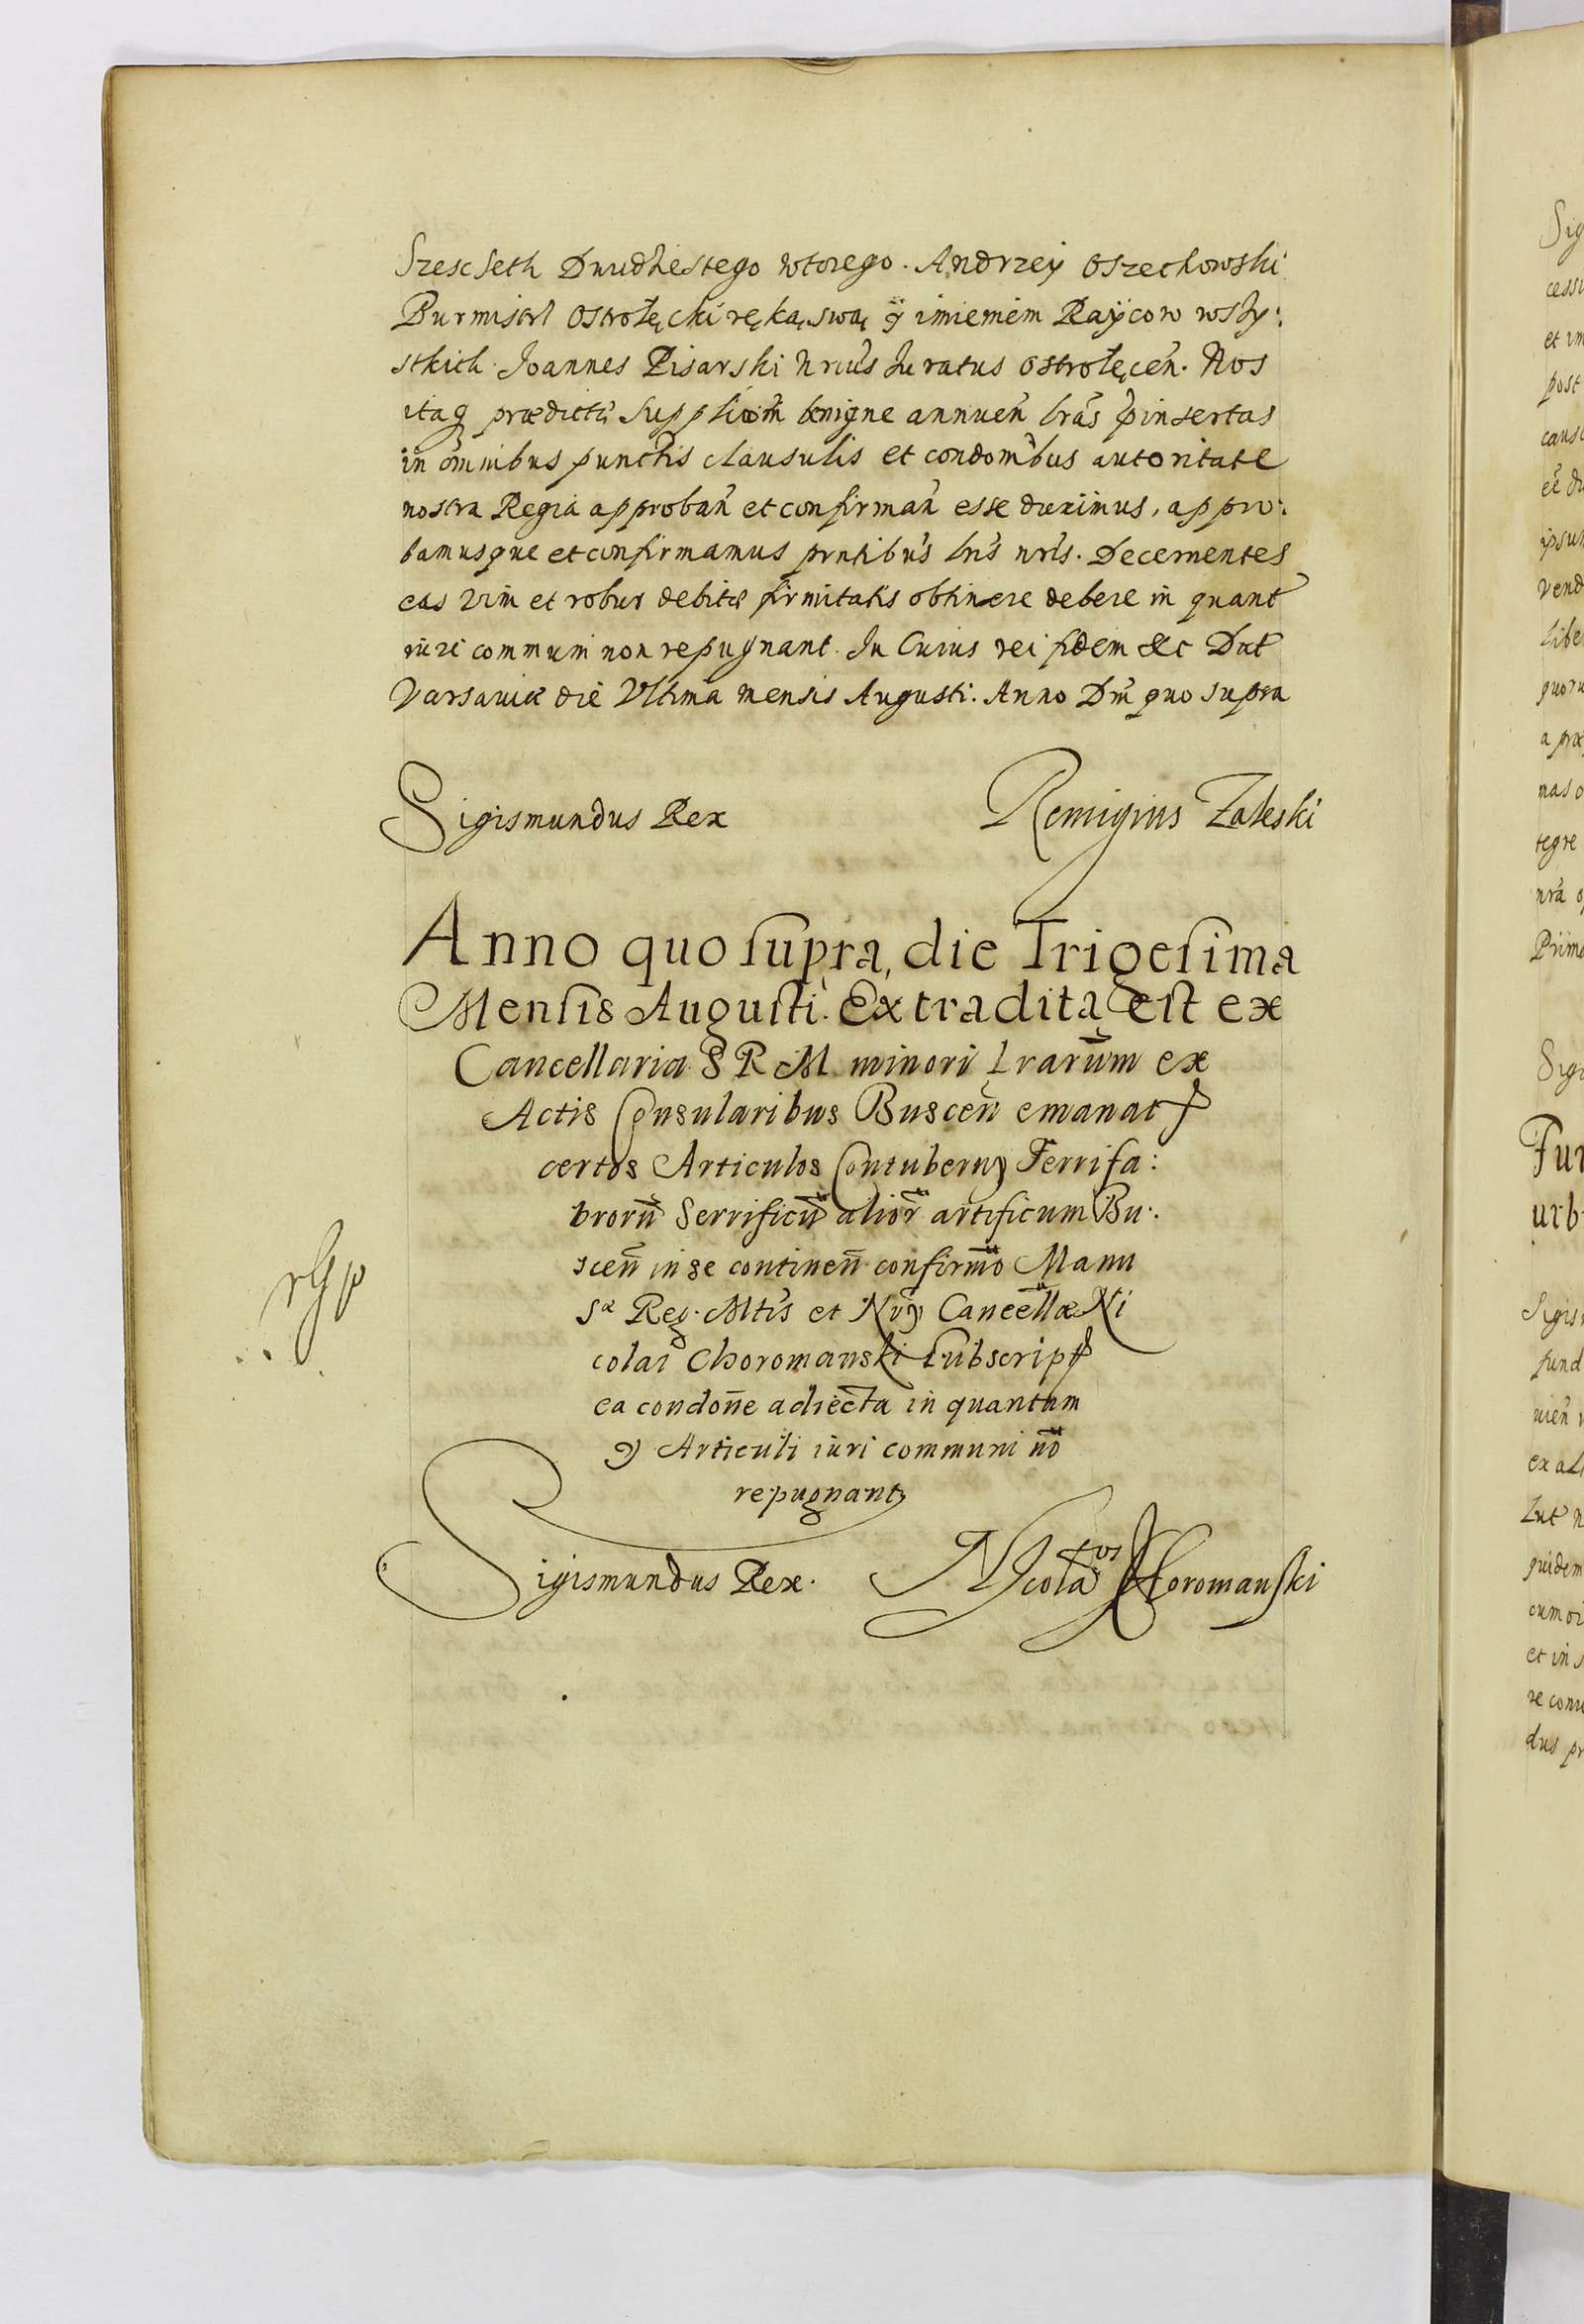 Szescseth Dwudziestego wtorego. Andrzey Orzechowski
Burmistrz Ostrołęcki ręką swą ÿ imieniem Raÿcow wszÿ:
stkich. Joannes Pisarski Nrius Juratus Ostrołęceñ. Nos
itaq prædictæ supplicõm benigne annueñ lras pinsertas
in omnibus punctis clausulis et condonibus autoritate
nostra Regia approbañ et confirmañ esse duximus, appro:
bamusque et confirmamus prntibus lris nris. Decernentes
eas vim et robur debitæ firmitatis obtinere debere in quant
iuri communi non repugnant. In Cuius rei fidem &c Dat
Varsaviæ die Ultima mensis Augusti. Anno Dm̃ quo supra
Sigismundus Rex
Remigius Zaleski
Anno quo supra, die Trigesima
Mensis Augusti. Extradita est ex
Cancellaria S R M minori Lrarum ex
Actis Consularibus Busceñ emanat
certos Articulos Contubernÿ Ferrifa:
brorũ Serrificũ alior artificum Bu:
sceñ in se contineñ confirmõ Manu
Sæ Reg. Mtis et Nrÿ Cancellæ Ni
colai Choromanski subscript
ea condoñe adiecta in quantum
ÿ Articuli iuri communi nõ
repugnant
Sigismundus Rex.
Nicolaus Choromanski
Sig
cessi
et im
post
caus
ipsu
vend
libe
quoru
a præ
nas o
tegre
nrã
Prima
Sigi
Fun
urb
Sigis
fund
ex al
quidem
cum oi
et in s
dus pr